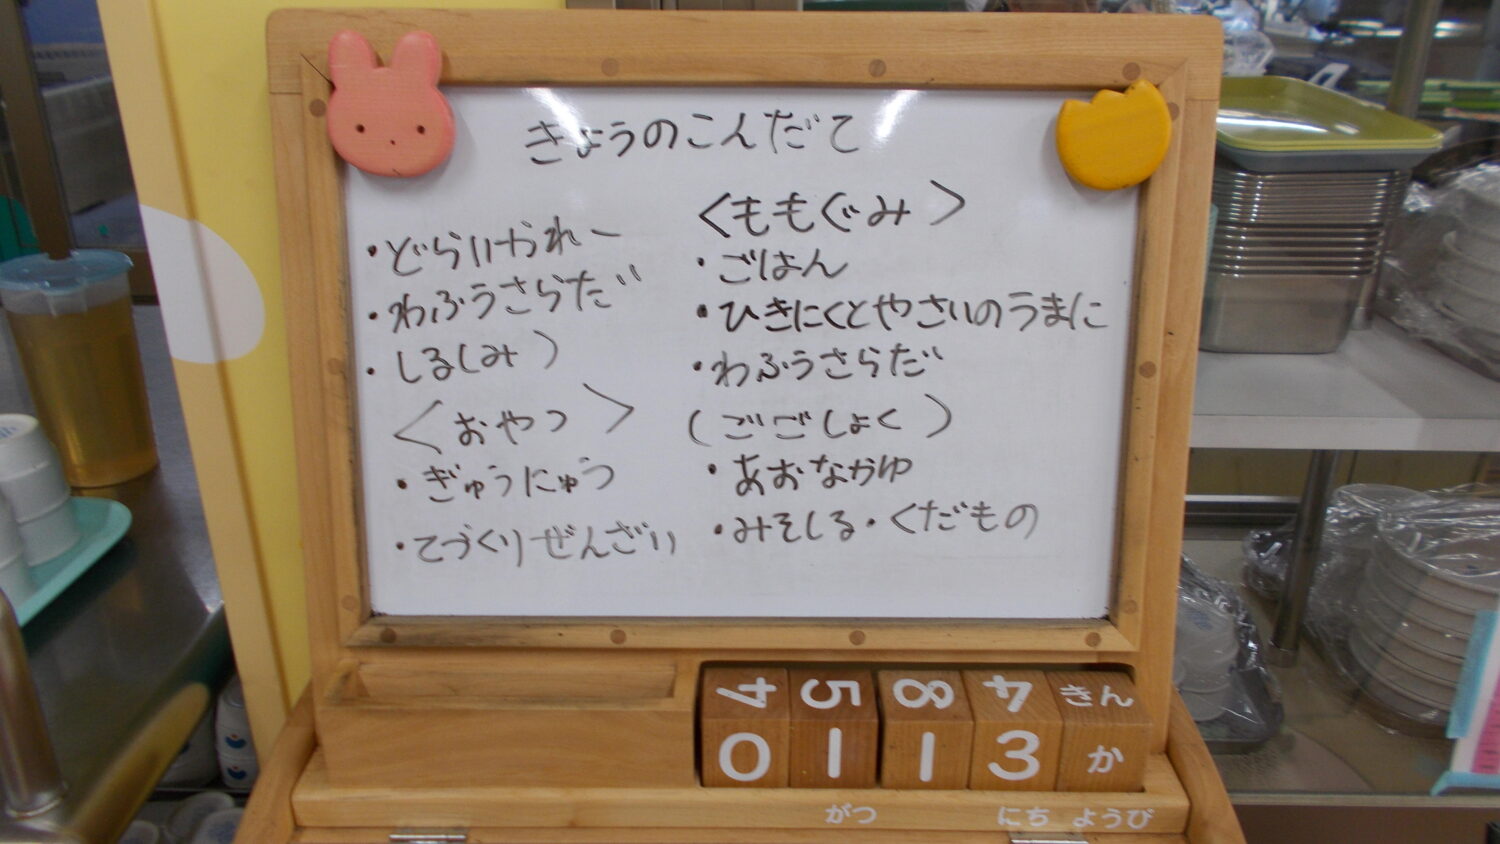 きょうのこんだて
・どらいかれー
・わふうさらだ
・しるしみ)
<おやつ>
・ぎゅうにゅう
・てづくりぜんざい
<ももぐみ>
・ごはん
・ひきにくとやさいのうまに
・わふうさらだ
(ごごしょく)
・あおなかゆ
・みそしる・くだもの
4 5 8 4 きん
0 1 1 3 か
がつ にち ようび